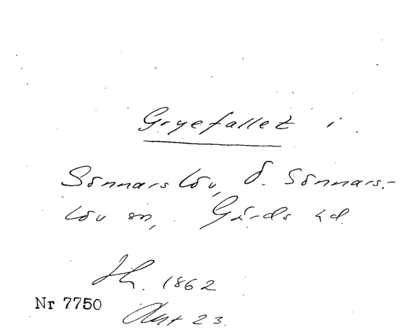 Gryefallet i
Sönnarslöv, Ö. Sönnars-
löv sn, Gärds hd.
Jh. 1862
Nr 7750
Akt 23.